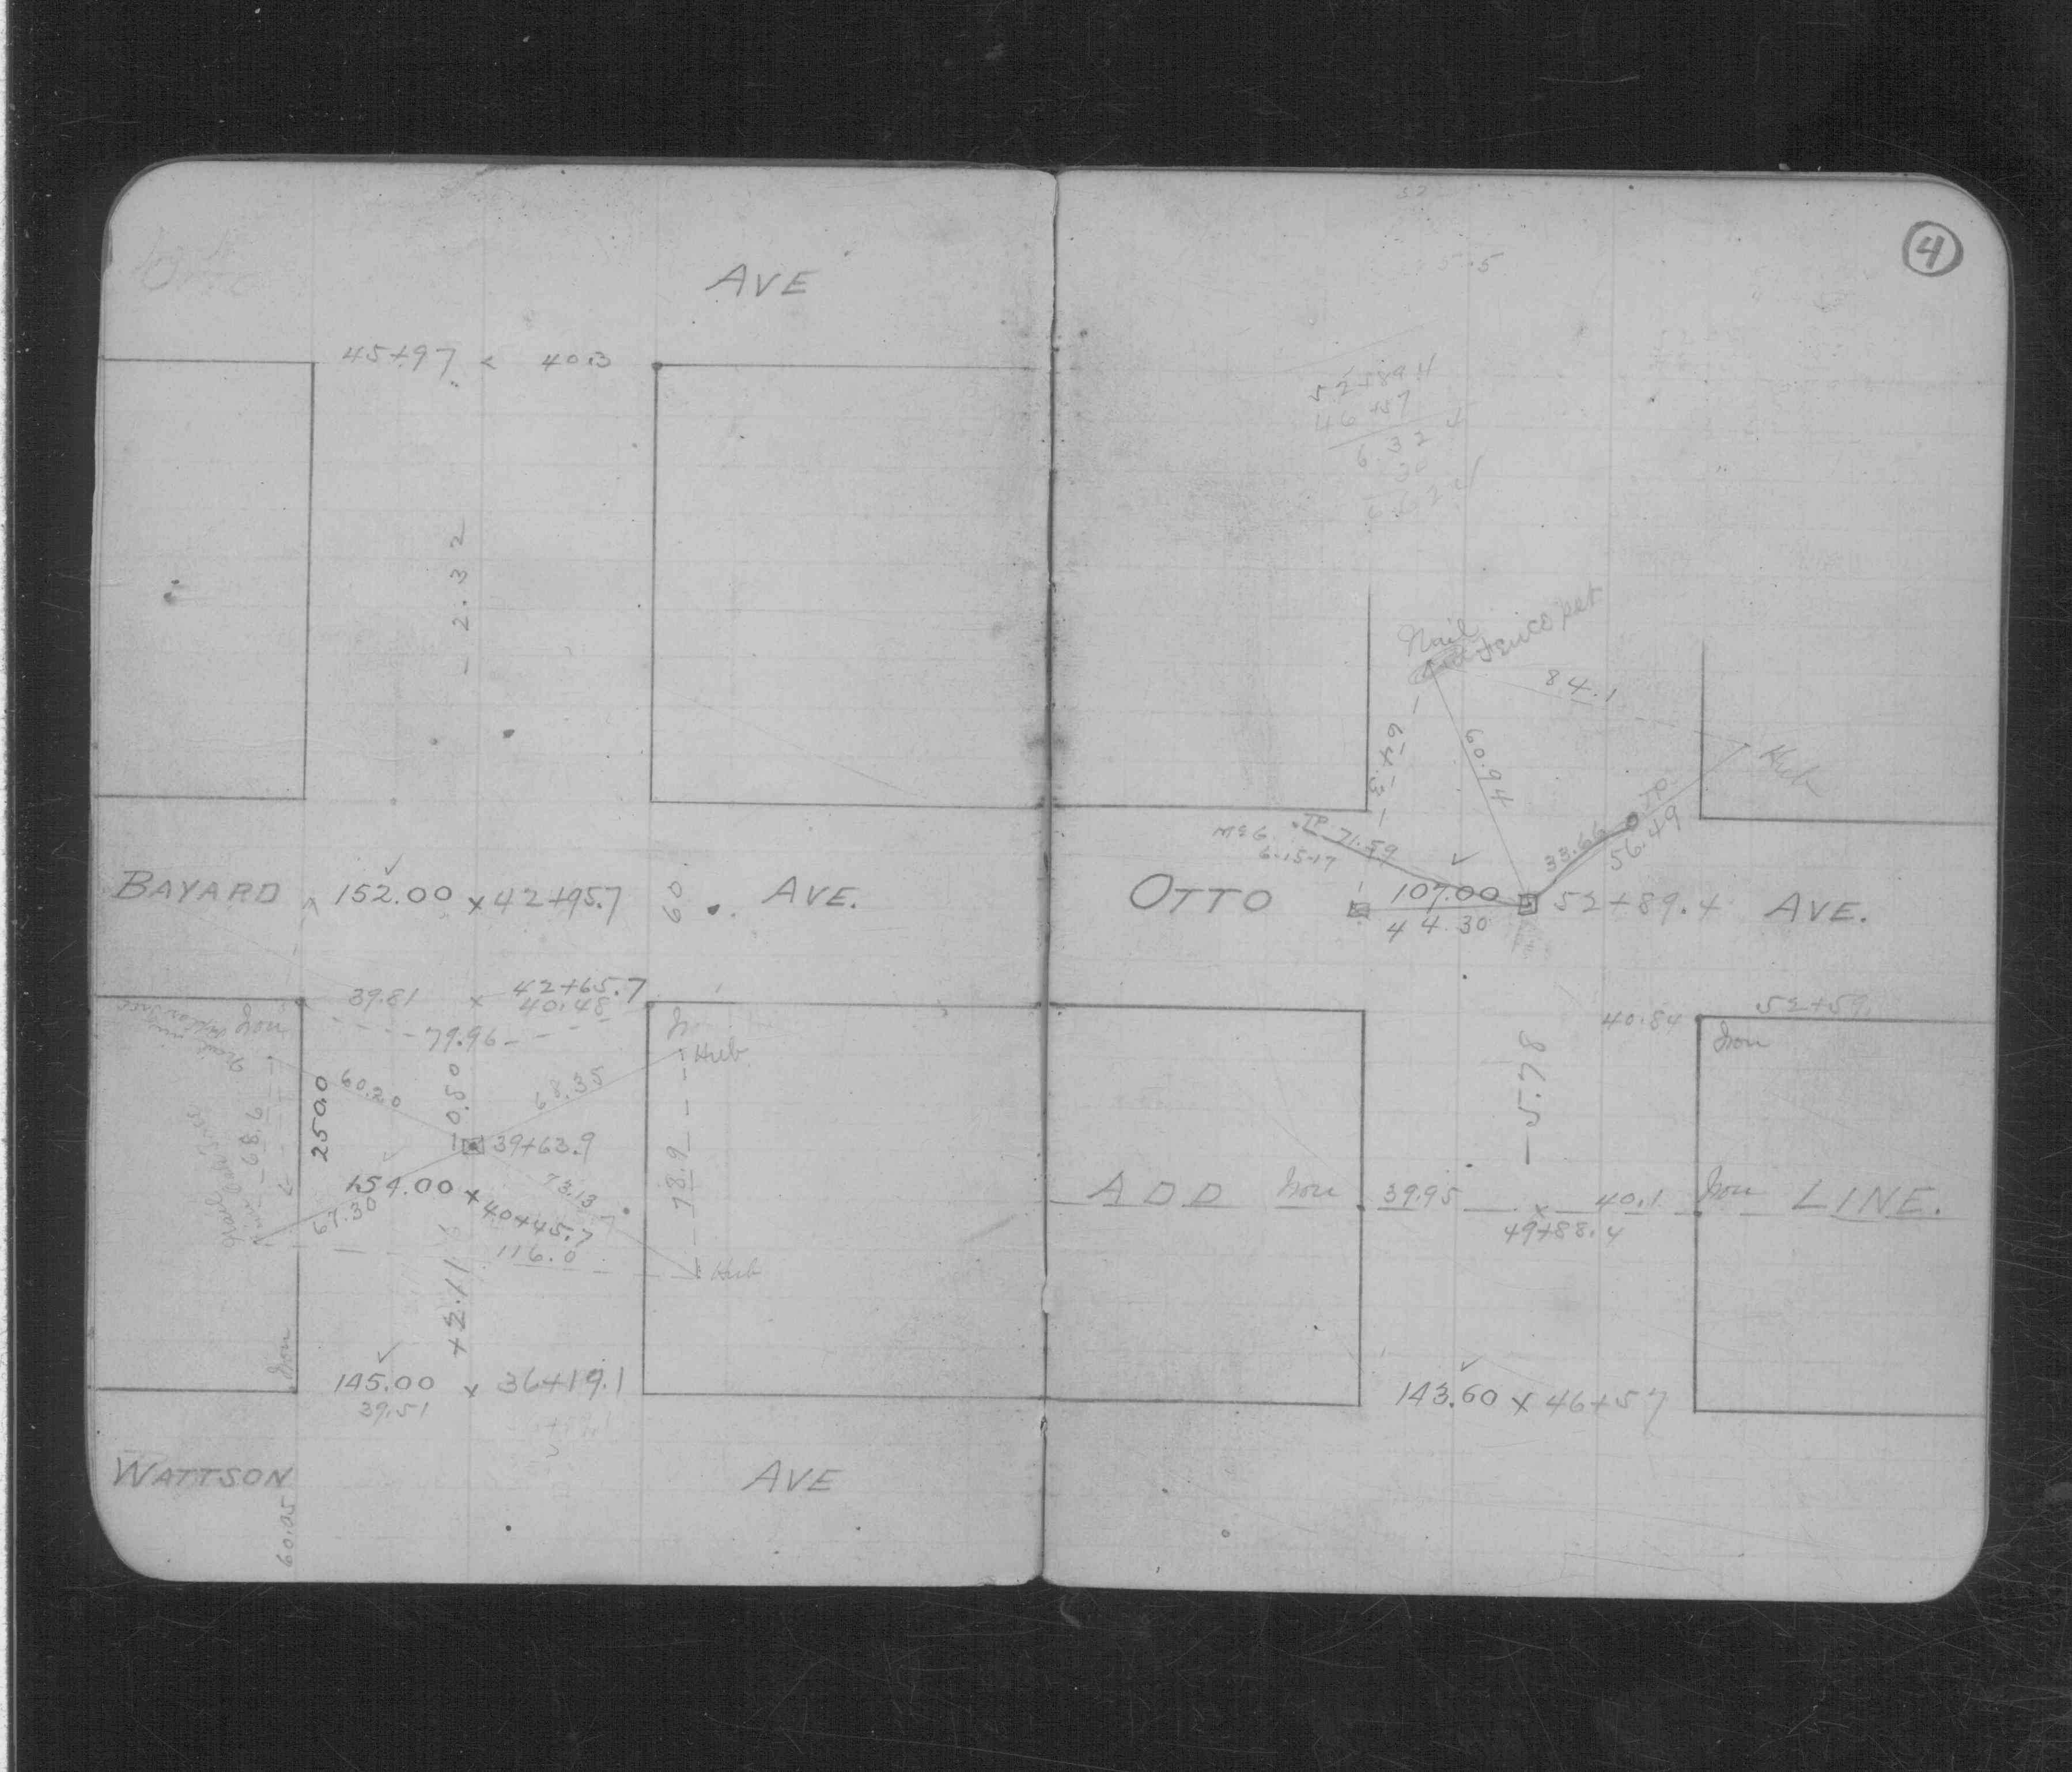 4
AVE
45+97 x 40.3
- 2.32
BAYARD 152.00 x 42+95.7 60 AVE.
42+65.7
39.81 x 40.48
- 79.96 -
Iron
Hub
60.20
68.35
250.0
0.50
68.6
39+63.9
78.9
154.00 x 40+45.7
73.13
67.30
116.0
Hub
+2.11
Iron
145.00 x 36+19.1
39.51
WATTSON AVE
60.05
52+89.4
46+57
6 32 4
30
6 62 4
Nail
Fence
84.1
64.3
60.94
Hub
TP
33.66
56.49
McG. TP 71.59
6-15-17
OTTO 107.00 52+89.4 AVE.
44.30
40.84 52+59
Iron
- 5.78
ADD Iron 39.95 x 40.1 Iron LINE.
49+88.4
143.60 x 46+57